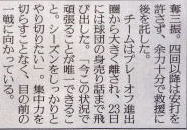 奪三振。四回以降は安打を
許さず、余力十分で救援に
後を託した。
チームはプレーオフ進出
圏から大きく離され、23日
には球団の身売り話まで飛
び出した。「今この状況で
頑張ることが唯一できるこ
と。シーズンをしっかりと
やり切りたい」。集中力を
切らすことなく、目の前の
一戦に向かっている。